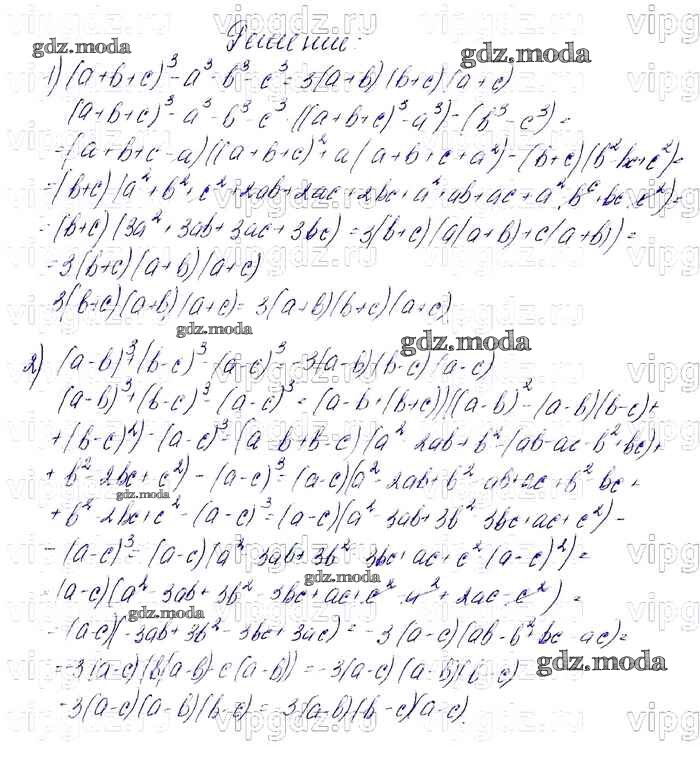 Решение:
1) (a+b+c)³-a³-b³-c³=3(a+b)(b+c)(a+c)
(a+b+c)³-a³-b³-c³=((a+b+c)³-a³)-(b³-c³)=
=(a+b+c-a)((a+b+c)²+a(a+b+c+a²)-(b+c)(b²-bc+c²)=
=(b+c)(a²+b²+c²+2ab+2ac+2bc+a²+ab+ac+a²-b²+bc-c²)=
=(b+c)(3a²+3ab+3ac+3bc)=3(b+c)(a(a+b)+c(a+b))=
=3(b+c)(a+b)(a+c)
3(b+c)(a+b)(a+c)=3(a+b)(b+c)(a+c)
2) (a-b)³+(b-c)³-(a-c)³=-3(a-b)(b-c)(a-c)
(a-b)³+(b-c)³-(a-c)³=(a-b+(b+c))((a-b)²-(a-b)(b-c)+
+(b-c)²)-(a-c)³=(a-b+b-c)(a²-2ab+b²-(ab-ac-b²+bc)+
+b²-2bc+c²)-(a-c)³=(a-c)(a²-2ab+b²-ab+ac+b²-bc+
+b²-2bc+c²-(a-c)³=(a-c)(a²-3ab+3b²-3bc+ac+c²)-
-(a-c)³=(a-c)(a²-3ab+3b²-3bc+ac+c²-(a-c)²)=
=(a-c)(a²-3ab+3b²-3bc+ac+c²-a²+2ac-c²)=
=(a-c)(-3ab+3b²-3bc+3ac)=-3(a-c)(ab-b²+bc-ac)=
=-3(a-c)(b(a-b)-c(a-b))=-3(a-c)(a-b)(b-c)
-3(a-c)(a-b)(b-c)=-3(a-b)(b-c)(a-c)
gdz.moda
vipgdz.ru